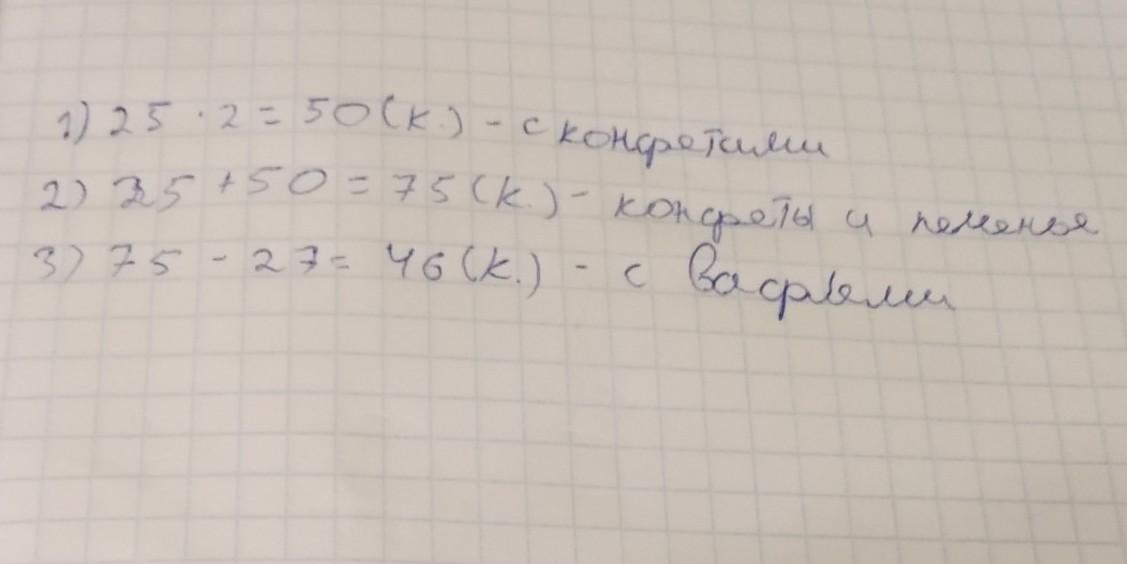 1) 25 · 2 = 50 (к.) - с конфетами
2) 25 + 50 = 75 (к.) - конфеты и печенье
3) 75 - 27 = 46 (к.) - с вафлями